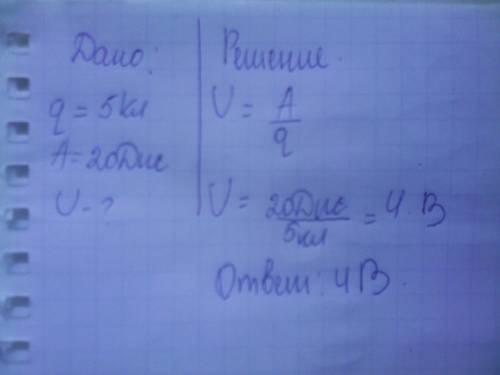 Дано:
q = 5 кл
A = 20 Дж
U - ?
Решение.
U = A/q
U = 20 Дж/5 кл = 4 В
Ответ: 4 В.